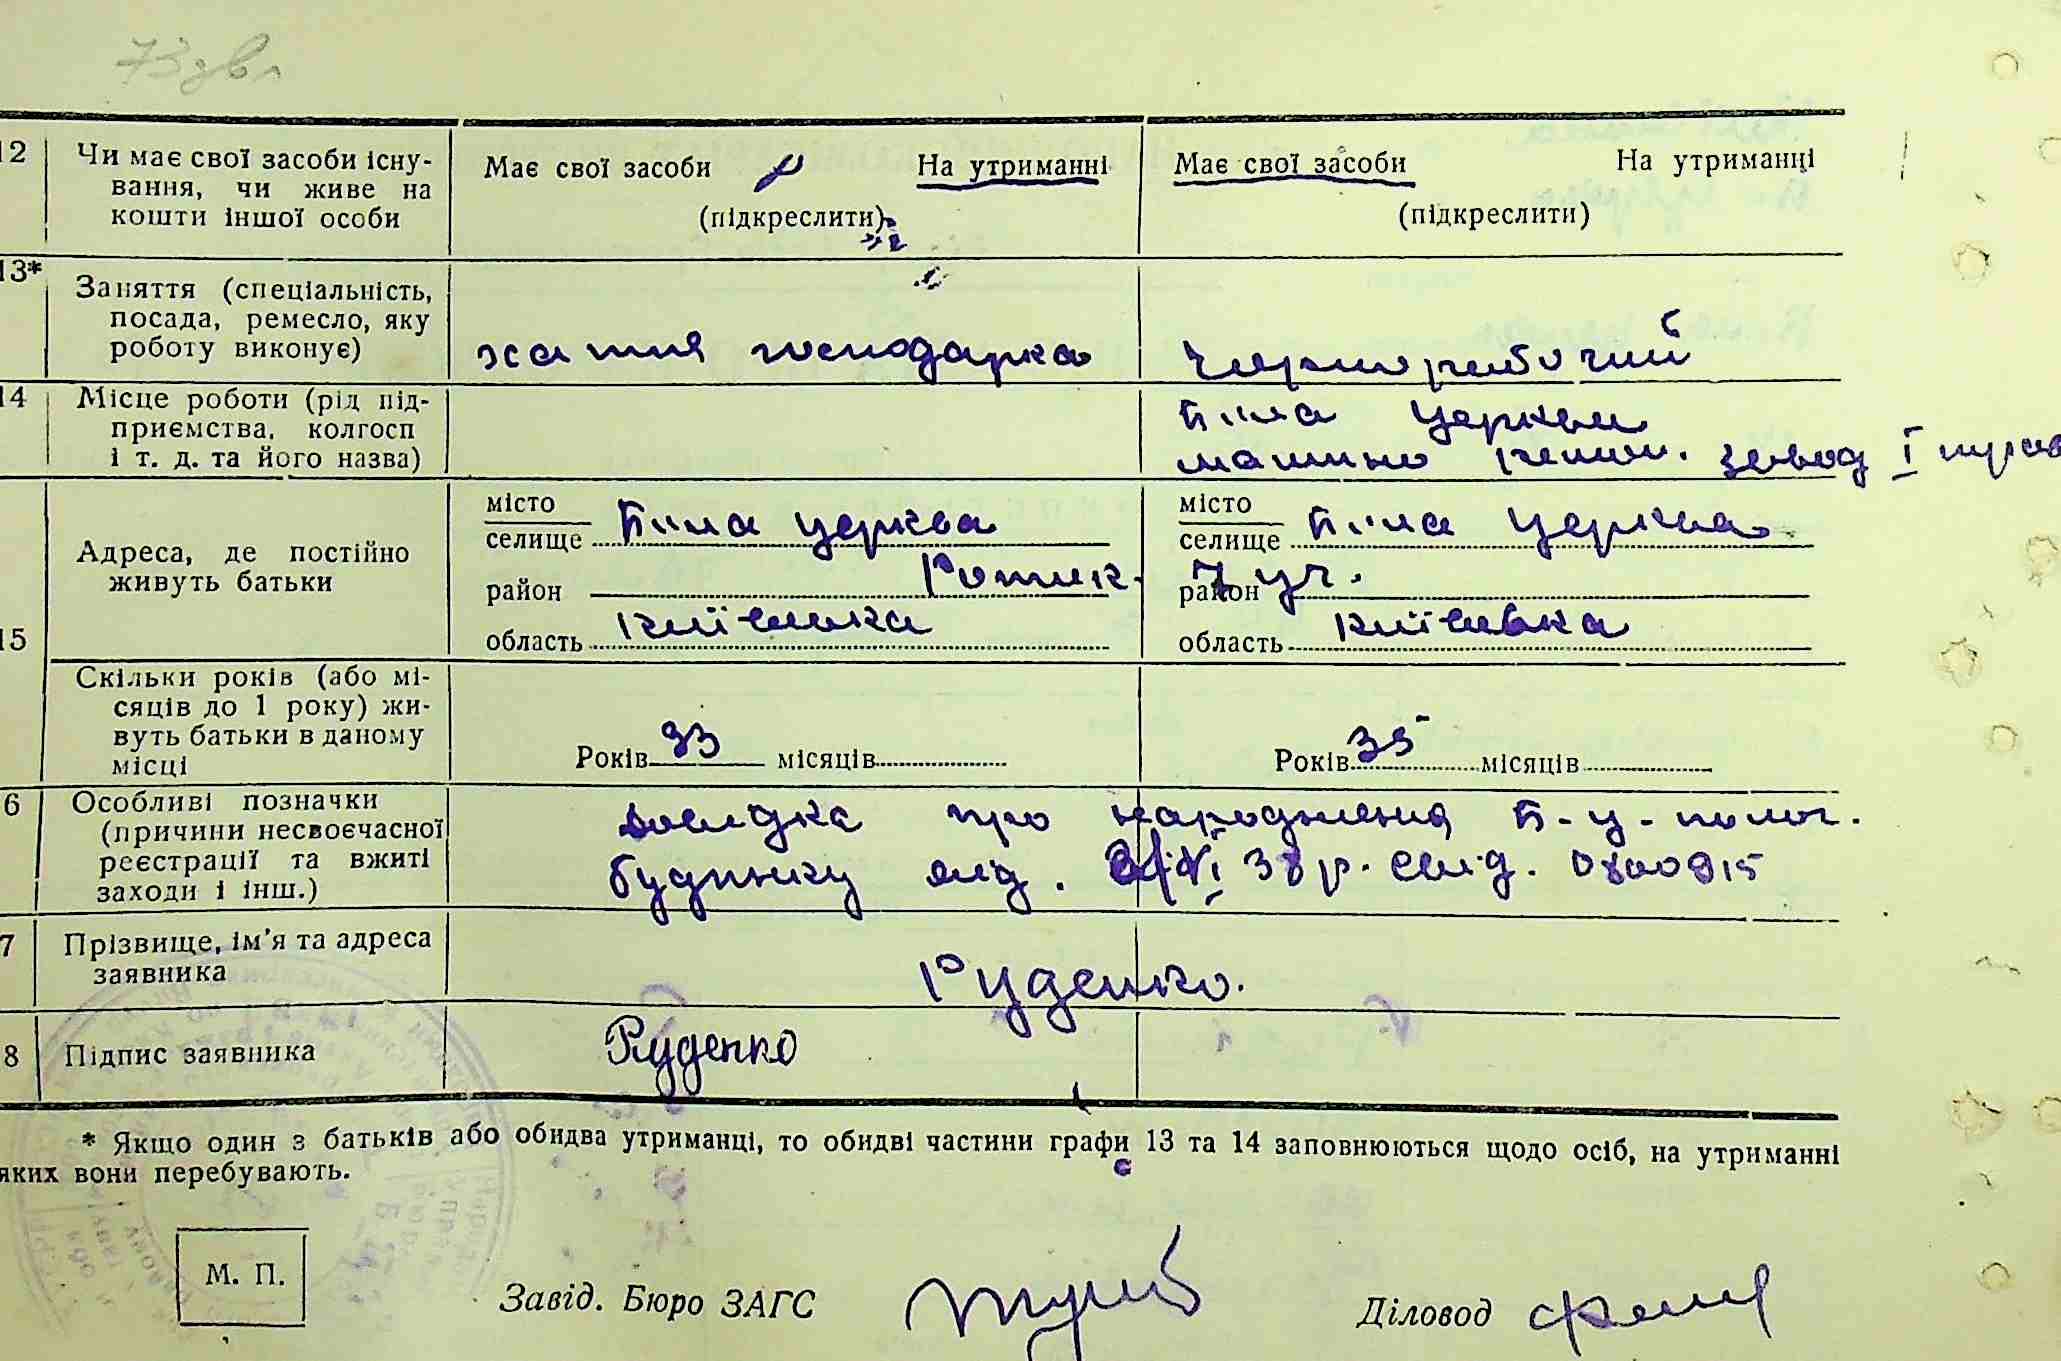 73 зв
12 Чи має свої засоби існу-
вання, чи живе на
кошти іншої особи
Має свої засоби На утриманні
(підкреслити)
Має свої засоби На утриманці
(підкреслити)
13* Заняття (спеціальність,
посада, ремесло, яку
роботу виконує)
хатня господарка
Чорноробочий
14 Місце роботи (рід під-
приємства, колгосп
і т. д. та його назва)
Біла Церква
машино завод I
15 Адреса, де постійно
живуть батьки
місто
селище Біла Церква
район Ротик.
область Київська
місто
селище Біла Церква
район 7 уч.
область Київська
Скільки років (або мі-
сяців до 1 року) жи-
вуть батьки в даному
місці
Років 33 місяців
Років 35 місяців
6 Особливі позначки
(причини несвоєчасної
реєстрації та вжиті
заходи і інш.)
Довидка про народження Б-Ц-полог.
будинку від. VI 38 р. свід. 0800915
7 Прізвище, ім’я та адреса
заявника
Руденко.
8 Підпис заявника
Руденко
* Якщо один з батьків або обидва утриманці, то обидві частини графи 13 та 14 заповнюються щодо осіб, на утриманні
яких вони перебувають.
М. П.
Завід. Бюро ЗАГС
Діловод